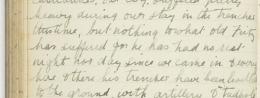 heavy during our stay in the trenches
this time, but nothing to what old Fritz
has suffered for he has had no rest
night nor day since we came in & every
here & there his trenches have been levelled
to the ground, with artillery &